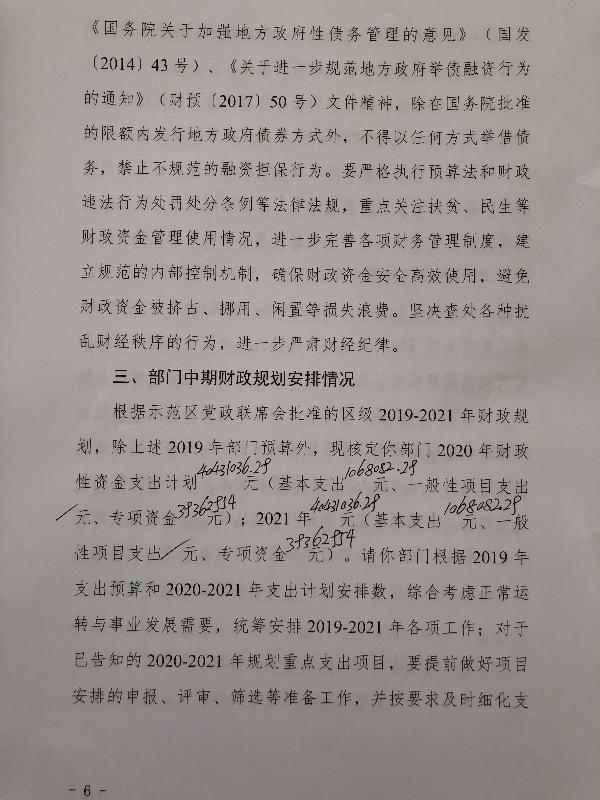 《国务院关于加强地方政府性债务管理的意见》（国发
〔2014〕43 号）、《关于进一步规范地方政府举债融资行为
的通知》（财预〔2017〕50 号）文件精神，除在国务院批准
的限额内发行地方政府债券方式外，不得以任何方式举借债
务，禁止不规范的融资担保行为。要严格执行预算法和财政
违法行为处罚处分条例等法律法规，重点关注扶贫、民生等
财政资金管理使用情况，进一步完善各项财务管理制度，建
立规范的内部控制机制，确保财政资金安全高效使用，避免
财政资金被挤占、挪用、闲置等损失浪费。坚决查处各种扰
乱财经秩序的行为，进一步严肃财经纪律。
三、部门中期财政规划安排情况
根据示范区党政联席会批准的区级 2019-2021 年财政规
划，除上述 2019 年部门预算外，现核定你部门 2020 年财政
性资金支出计划40431036.29元（基本支出1068082.29元、一般性项目支出
/元、专项资金39362954元）；2021 年40431036.29元（基本支出1068082.29元、一般
性项目支出/元、专项资金39362954元）。请你部门根据 2019 年
支出预算和 2020-2021 年支出计划安排数，综合考虑正常运
转与事业发展需要，统筹安排 2019-2021 年各项工作；对于
已告知的 2020-2021 年规划重点支出项目，要提前做好项目
安排的申报、评审、筛选等准备工作，并按要求及时细化支
- 6 -